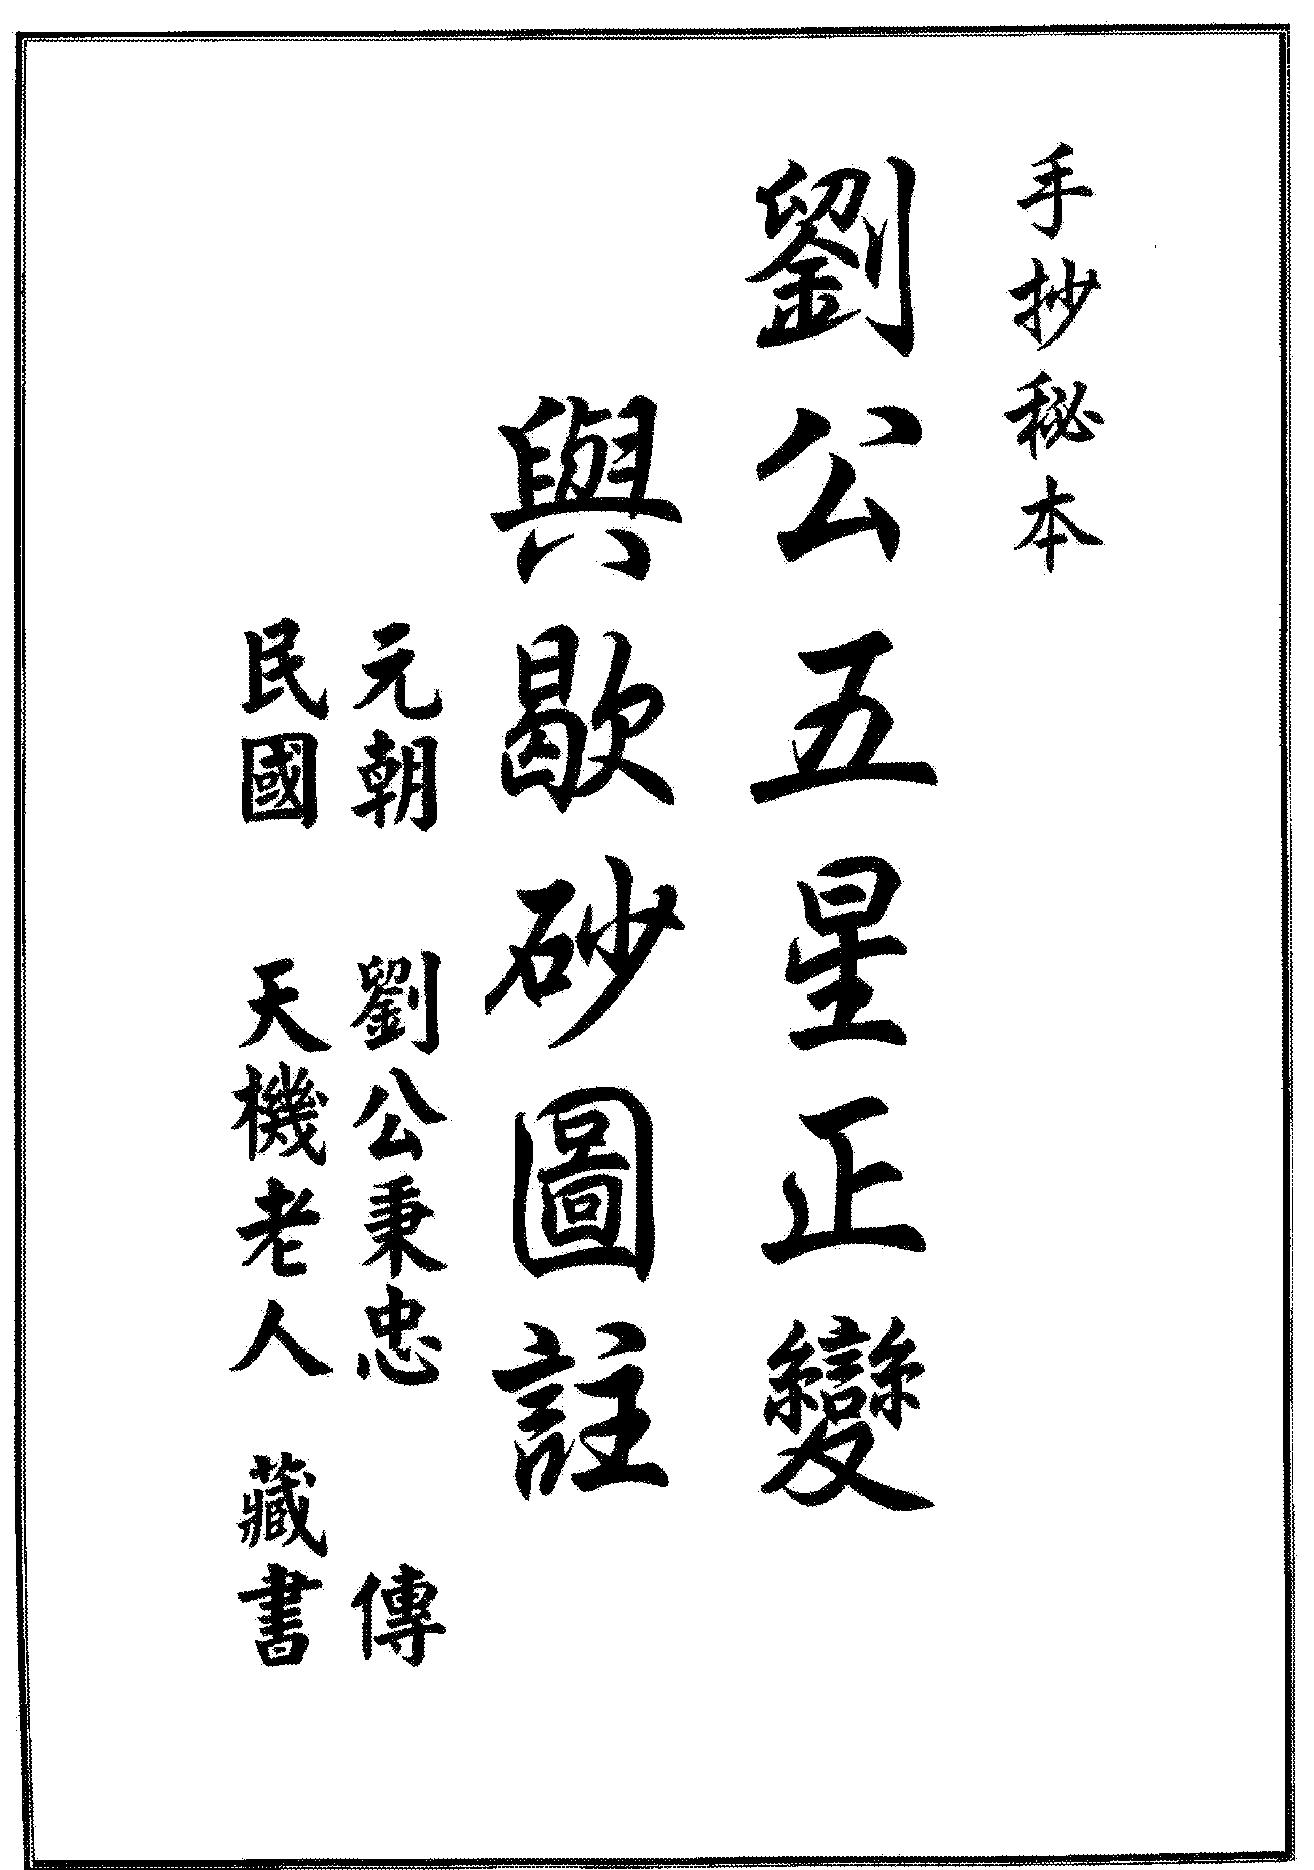 手抄秘本
劉公五星正變
與歇砂圖註
元朝 劉公秉忠 傳
民國 天機老人 藏書